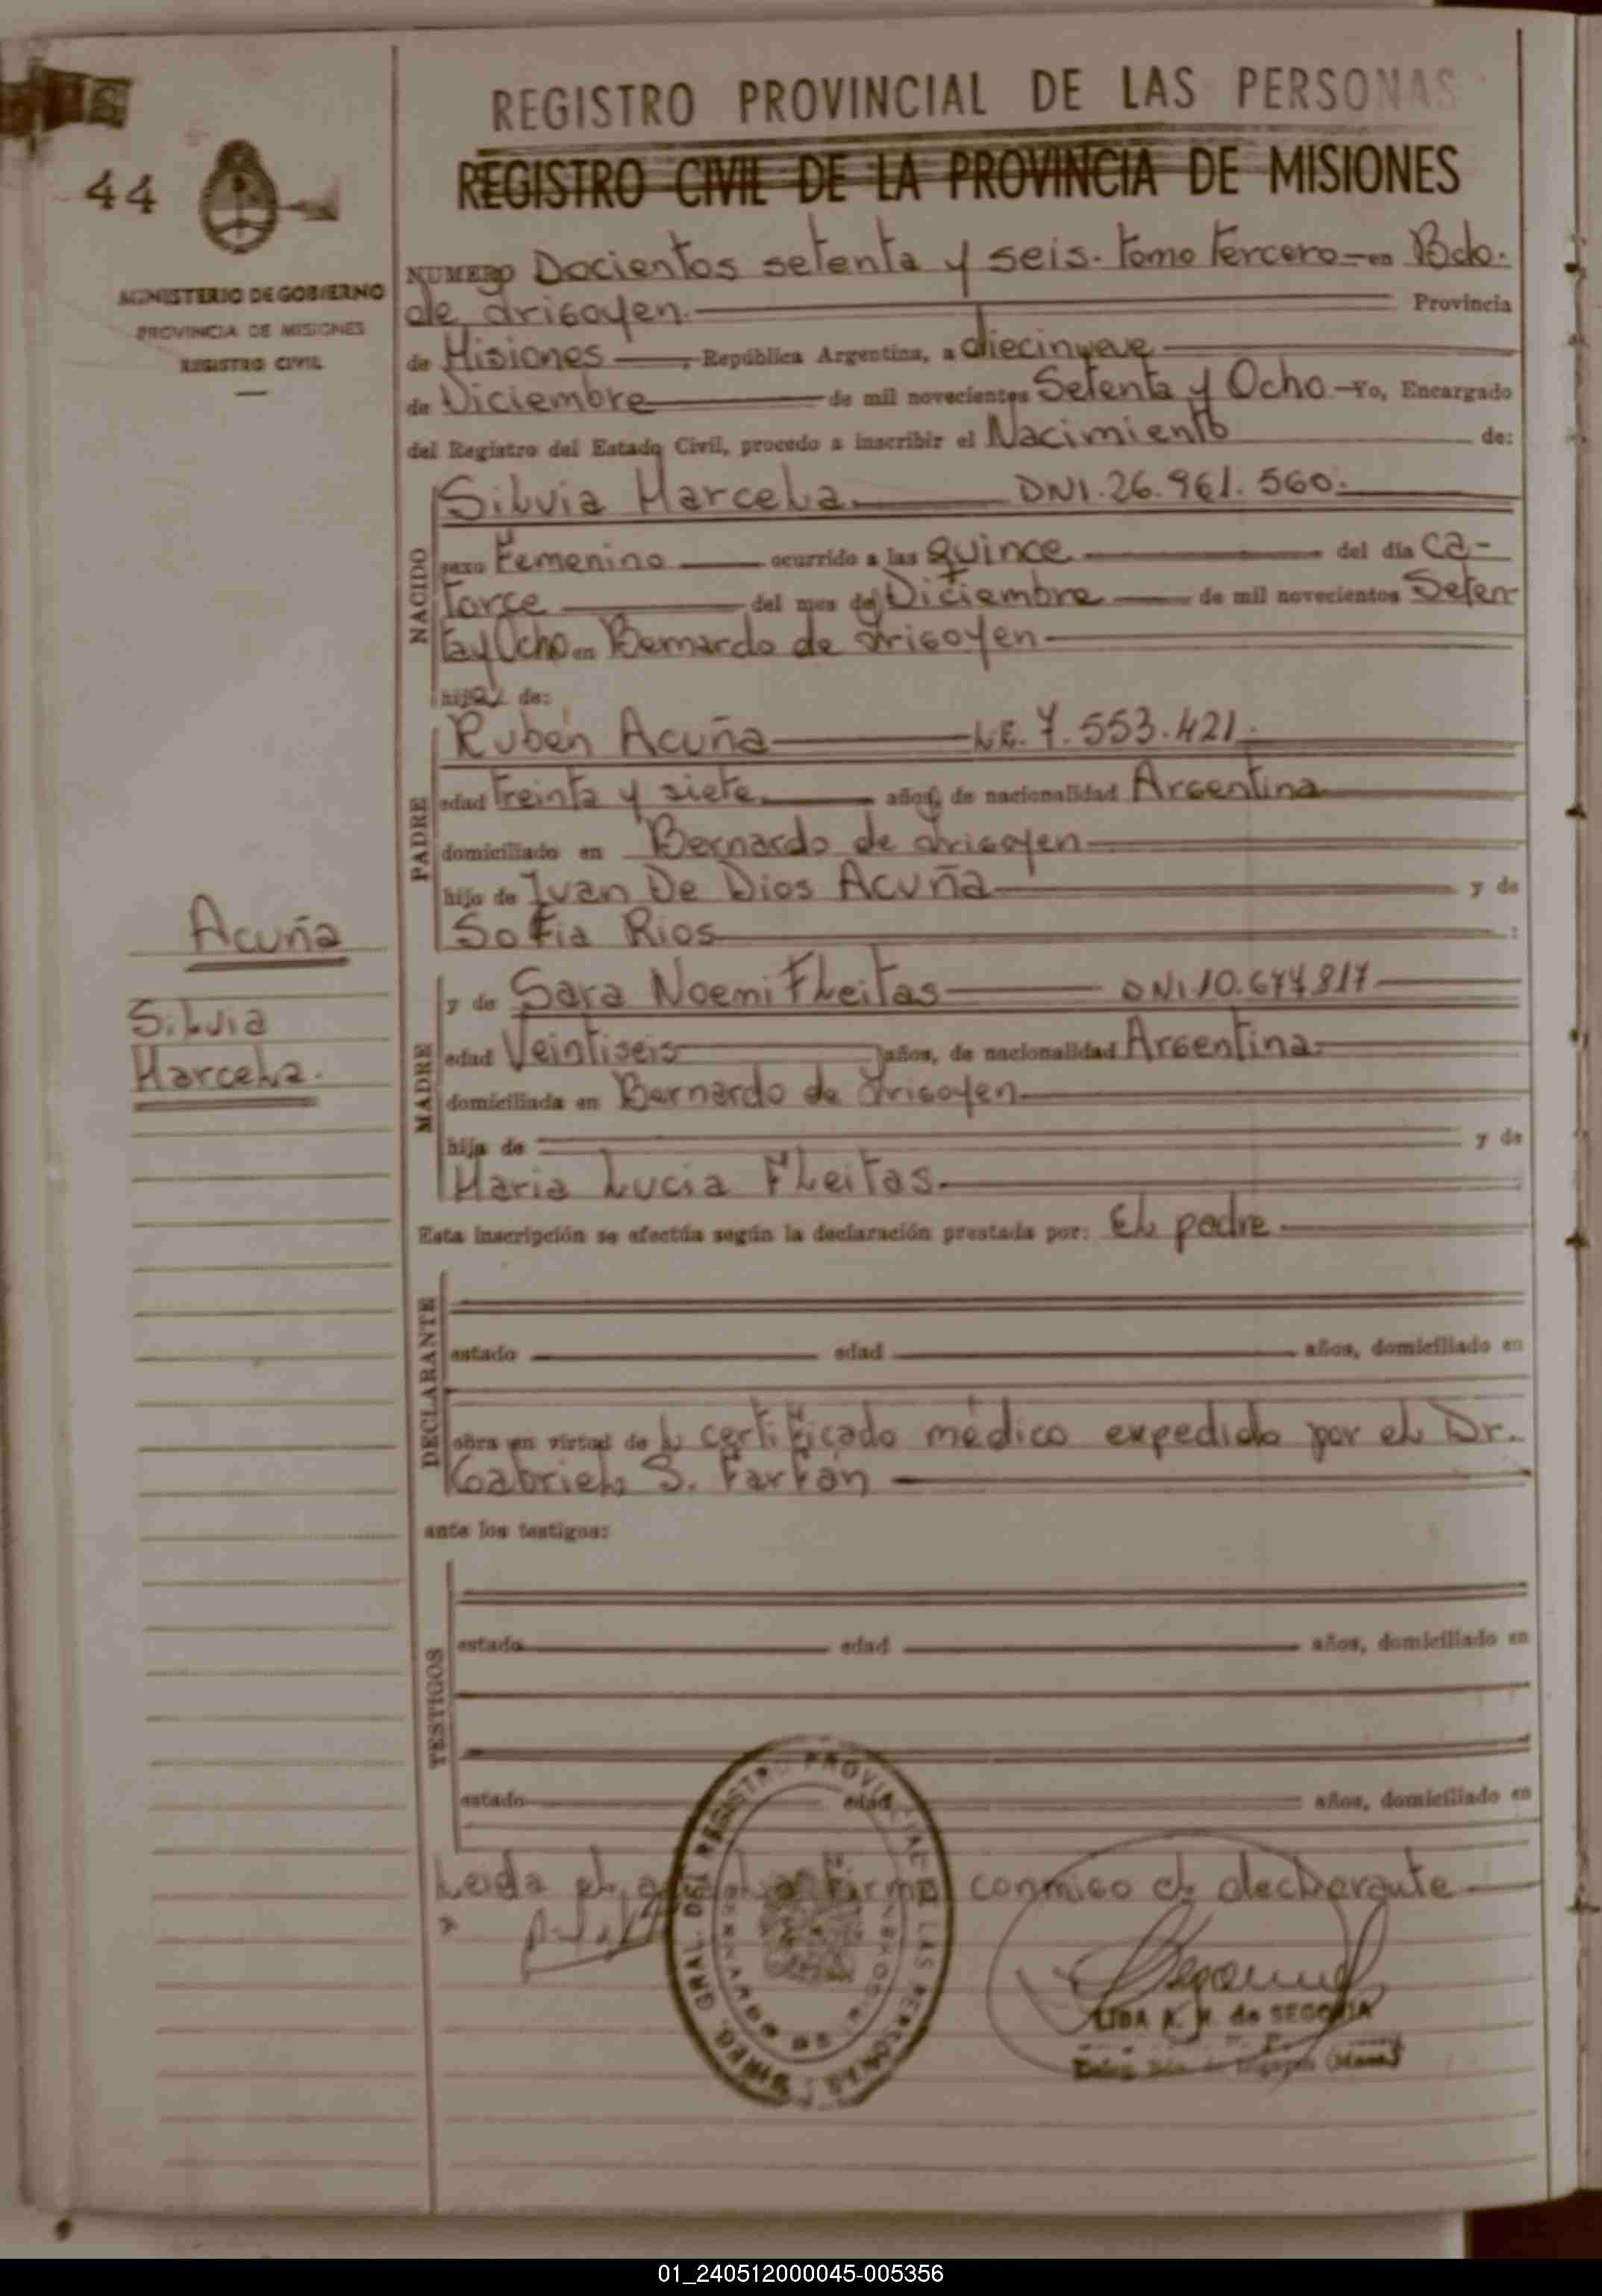 REGISTRO PROVINCIAL DE LAS PERSONAS
REGISTRO CIVIL DE LA PROVINCIA DE MISIONES
44
MINISTERIO DE GOBIERNO
PROVINCIA DE MISIONES
REGISTRO CIVIL
NUMERO Docientos setenta y seis. tomo tercero en Bdo.
de Irigoyen. Provincia
de Misiones, República Argentina, a diecinueve
de Diciembre de mil novecientos Setenta y Ocho Yo, Encargado
del Registro del Estado Civil, procedo a inscribir el Nacimiento de:
NACIDO
Silvia Marcela. DNI. 26.961.560.
sexo Femenino ocurrido a las Quince del día Ca-
torce del mes de Diciembre de mil novecientos Seten
tay Ocho en Bernardo de Irigoyen
hija de:
PADRE
Rubén Acuña L.E. 7.553.421.
edad treinta y siete. años, de nacionalidad Argentina
domiciliado en Bernardo de Irigoyen
hijo de Juan De Dios Acuña y de
Sofia Rios :
Acuña
Silvia
Marcela.
MADRE
y de Sara Noemi Fleitas DNI 10.677.817
edad Veintiseis años, de nacionalidad Argentina.
domiciliada en Bernardo de Irigoyen
hija de y de
Maria Lucia Fleitas.
Esta inscripción se efectúa según la declaración prestada por: El padre
DECLARANTE
estado edad años, domiciliado en
obra en virtud de l certificado médico expedido por el Dr.
Gabriel S. Farfán
ante los testigos:
TESTIGOS
estado edad años, domiciliado en
estado edad años, domiciliado en
Leida el firma conmigo el declarante
DIREC. GRAL. DEL REGISTRO PROVINCIAL DE LAS PERSONAS
LIBA R. M. de SEGOVIA
01_240512000045-005356